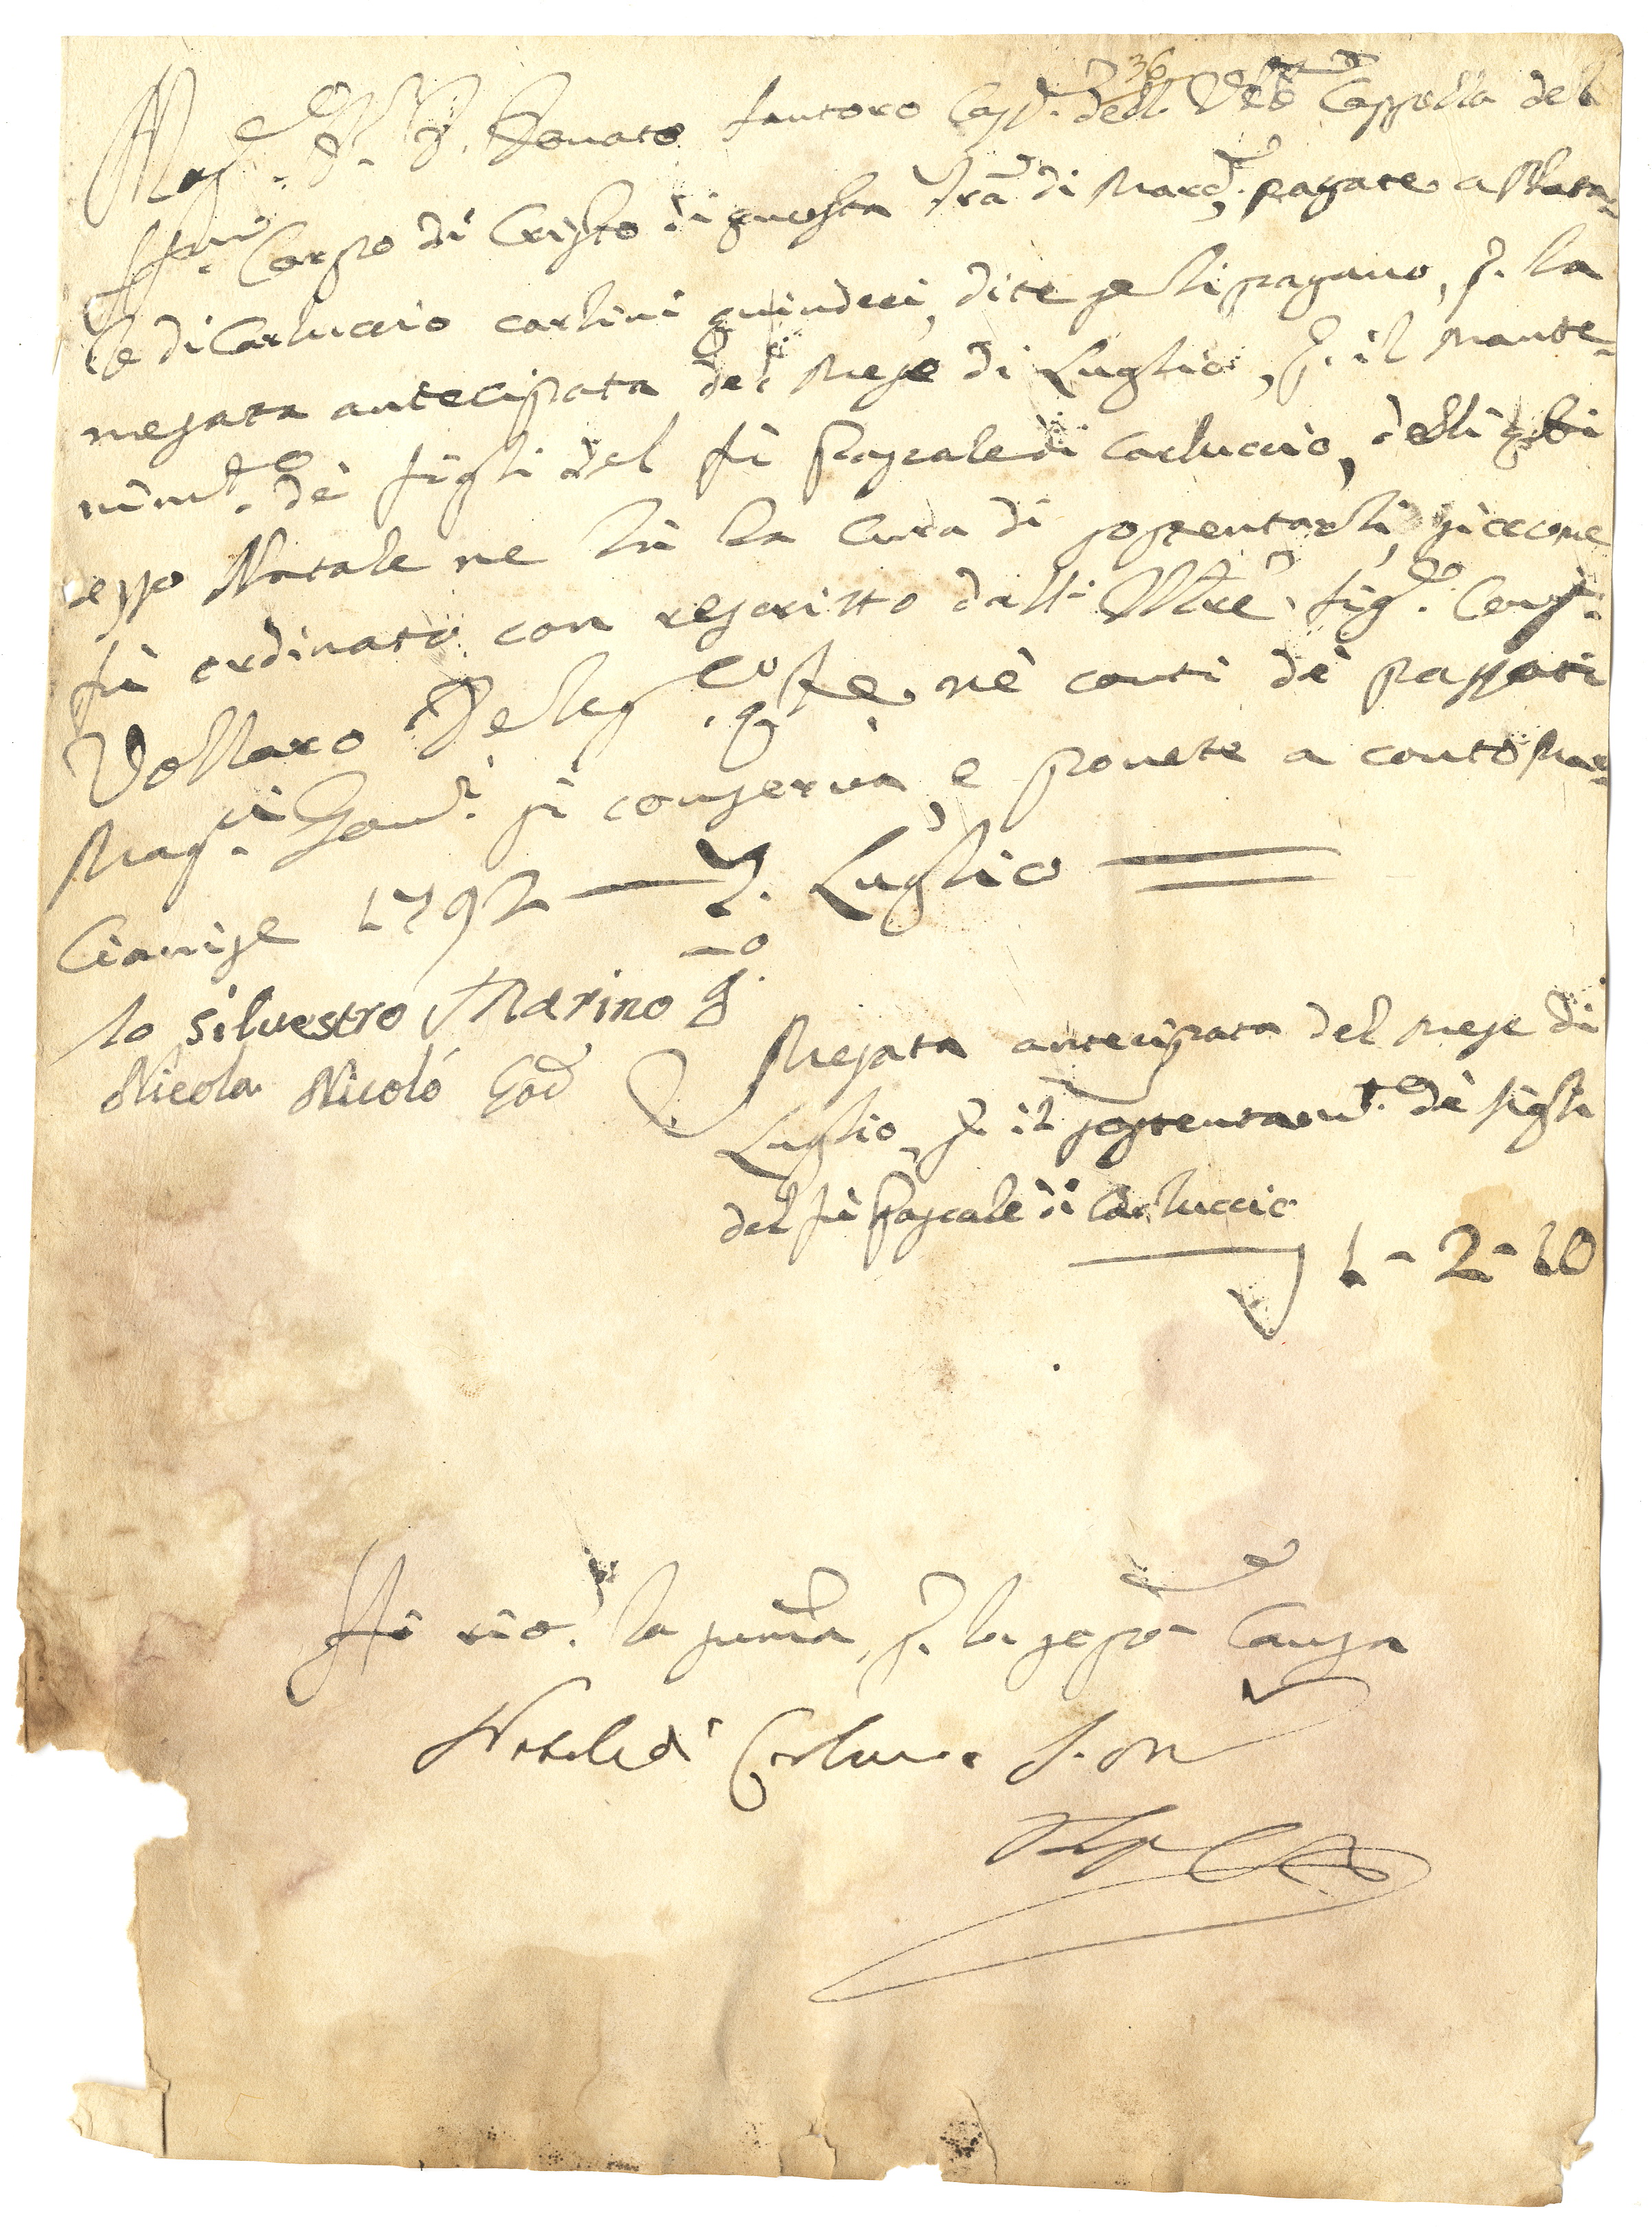 36
Mag.co S.r D. Donato Santoro Cass.re dell. Ven.e Cappella del
SS.mo Corpo di Cristo di questa Tra di Marc.e, pagate a Nata-
le di Carluccio carlini quindeci, dite se li pagano, p. la
mesata antecipata del Mese di Luglio, p. il mante-
nim.to de figli del fù Pascale di Carluccio, delli q.li
esso Natale ne hà la cura di sostentarli, siccome
fù ordinato con rescritto dall' Ill.re Sig.r Cons.
Vollaro Deleg.to, q.le ne conti de passati
Mag.ci Gov.i si conserva, e ponete a conto Mar-
cianise 1792 — 7. Luglio =
Io Silvestro Marino G.no
Nicola Nicoló Gov
P. Mesata antecipata del mese di
Luglio, p. il sostentam.to de figli
del fù Pascale di Carluccio
1 - 2 - 10
Hò ric. la suma, p. la sop.a Causa
Natale di Carluccio